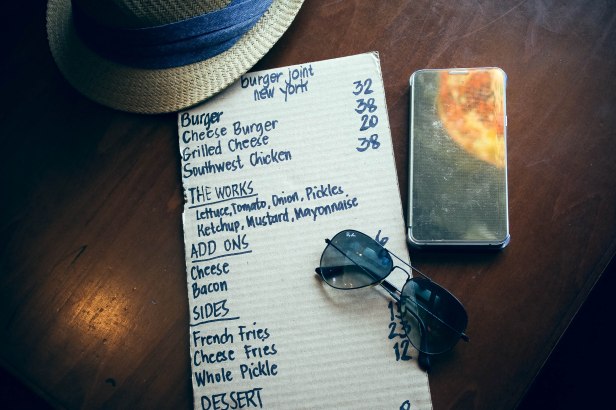 burger joint
new york
Burger 32
Cheese Burger 38
Grilled Cheese 20
Southwest Chicken 38
THE WORKS
Lettuce, Tomato, Onion, Pickles
Ketchup, Mustard, Mayonnaise
ADD ONS
Cheese 6
Bacon
SIDES
French Fries
Cheese Fries 23
Whole Pickle 12
DESSERT
Ray-Ban